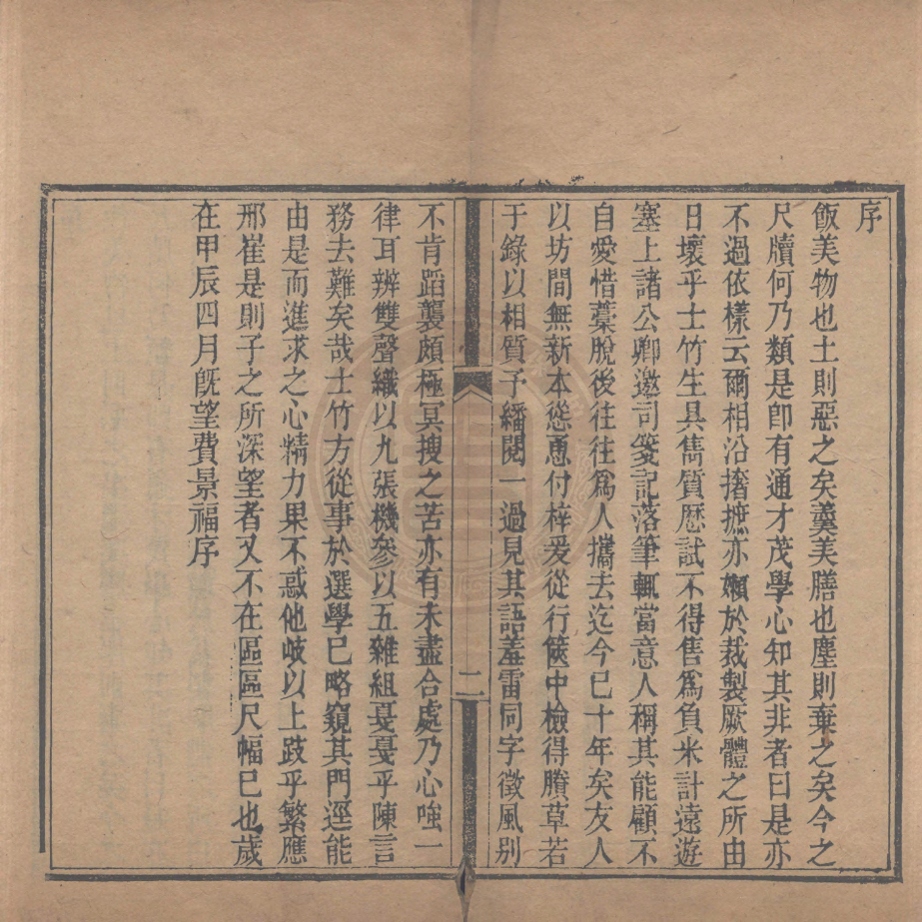 序
飯美物也土則惡之矣羹美膳也塵則棄之矣今之
尺牘何乃類是卽有通才茂學心知其非者曰是亦
不過依樣云爾相沿撦摭亦嬾於裁製厥體之所由
日壞乎士竹生具雋質歴試不得售爲負米計遠遊
塞上諸公卿邀司箋記落筆輒當意人稱其能顧不
自愛惜藳脫後往往爲人攜去迄今已十年矣友人
以坊間無新本慫恿付梓爰從行篋中檢得賸草若
于錄以相質予繙閱一過見其語羞雷同字徵風別
二
不肯蹈襲頗極冥搜之苦亦有未盡合處乃心嗤一
律耳辨雙聲織以九張機參以五雜組戞戞乎陳言
務去難矣哉士竹方從事於選學已略窺其門逕能
由是而進求之心精力果不惑他岐以上跂乎繁應
邢崔是則子之所深望者又不在區區尺幅已也歲
在甲辰四月旣望費景福序